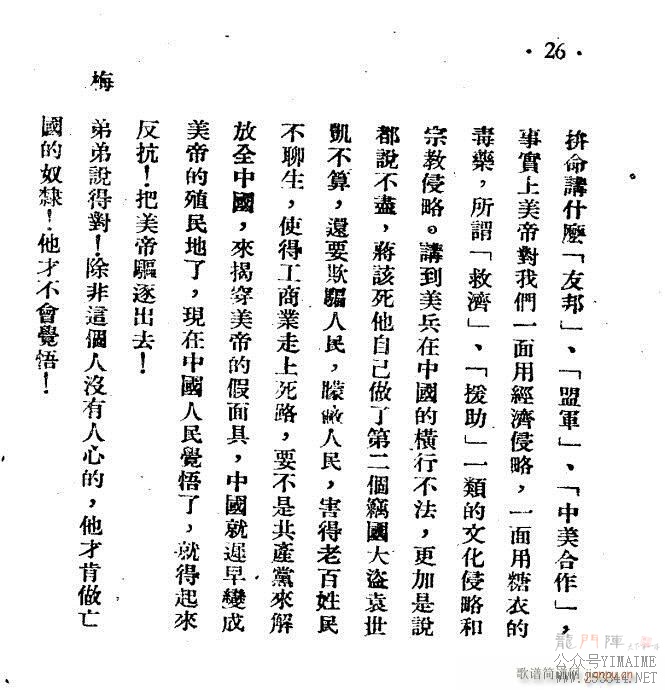 ·26·
拚命講什麼「友邦」、「盟軍」、「中美合作」，
事實上美帝對我們一面用經濟侵略，一面用糖衣的
毒藥，所謂「救濟」、「援助」一類的文化侵略和
宗教侵略。講到美兵在中國的橫行不法，更加是說
都說不盡，蔣該死他自己做了第二個竊國大盜袁世
凱不算，還要欺騙人民，朦蔽人民，害得老百姓民
不聊生，使得工商業走上死路，要不是共產黨來解
放全中國，來揭穿美帝的假面具，中國就遲早變成
美帝的殖民地了，現在中國人民覺悟了，就得起來
反抗！把美帝驅逐出去！
梅　弟弟說得對！除非這個人沒有人心的，他才肯做亡
國的奴隸！他才不會覺悟！
龍門陣
公众号YIMAIME
歌谱简谱网